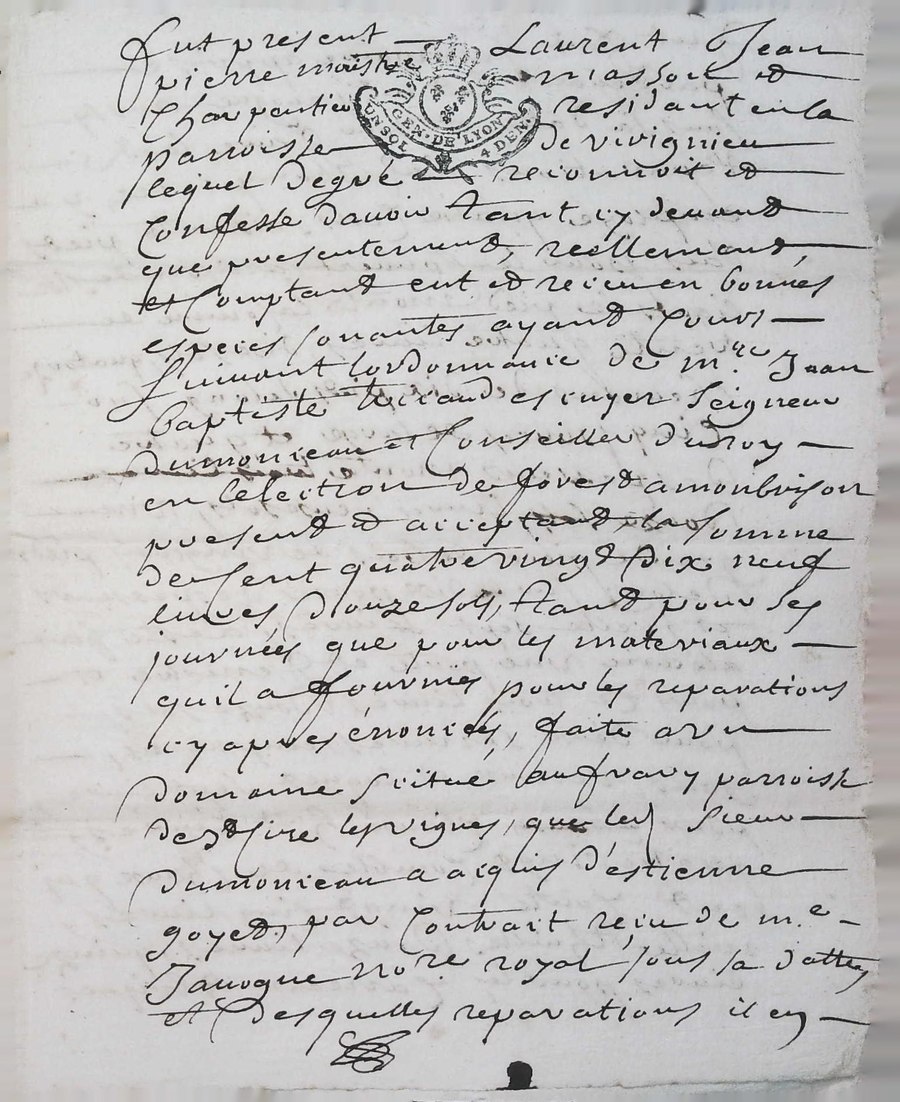 fut present Laurent Jean
pierre maistre masson et
Charpentier residant en la
parroisse de vivignieu
lequel de gré reconnoit et
Confesse d'avoir tant cy devand
que presentemend, reellemend
et Comptand eut et receu en bonnes
especes sonantes ayand Cours
suivant lordonnance de mre Jean
baptiste escuyer seigneur
dumonceau et Conseiller du Roy
en lelection de forest a monbrison
present et acceptand la somme
de Cent quatre vingt dix neuf
livres douze sols, tand pour ses
journées que pour les materiaux
quil a fournies pour les reparations
cy apres énoncées, faite a un
domaine scitué au fravy parroisse
de st Cire les vignes, que led sieur
dumonceau a acquis d'estienne
goyed, par Contrait reçu de me
Javogue nore royal sous sa datte,
et Desquelles reparations il en
GEN. DE LYON
UN SOL 4 DEN.